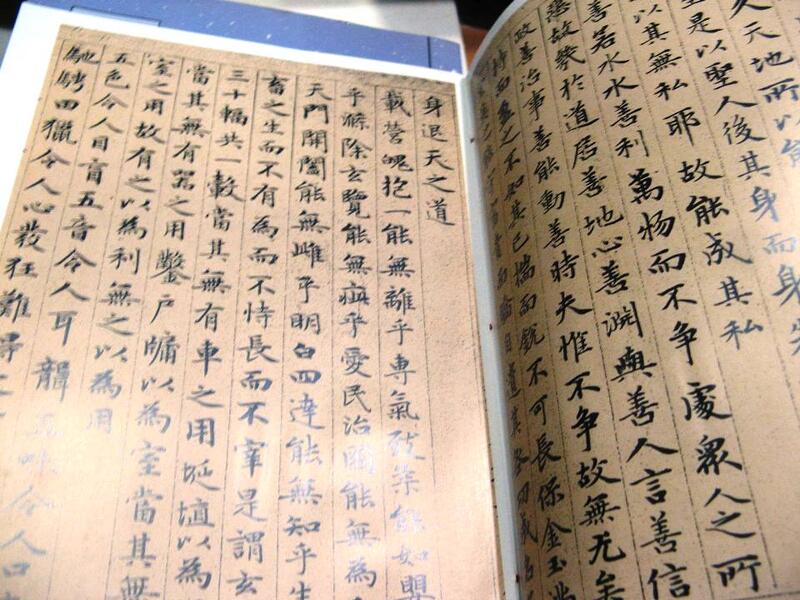 久天地所以能
是以聖人後其身而身先
以其無私耶故能成其私
善若水水善利萬物而不爭處衆人之所
惡故幾於道居善地心善淵與善人言善信
政善治事善能動善時夫惟不爭故無尤矣
持而盈之不知其已揣而銳不可長保金玉
自遺其咎功成名
身退天之道
載營魄抱一能無離乎専氣致柔能如嬰
乎滌除玄覽能無疵乎愛民治國能無為
天門開闔能無雌乎明白四達能無知乎生
畜之生而不有為而不恃長而不宰是謂玄
三十輻共一轂當其無有車之用埏埴以為
當其無有器之用鑿戶牖以為室當其無
室之用故有之以為利無之以為用
五色令人目盲五音令人耳聾五味令人口
馳騁田獵令人心發狂難得之